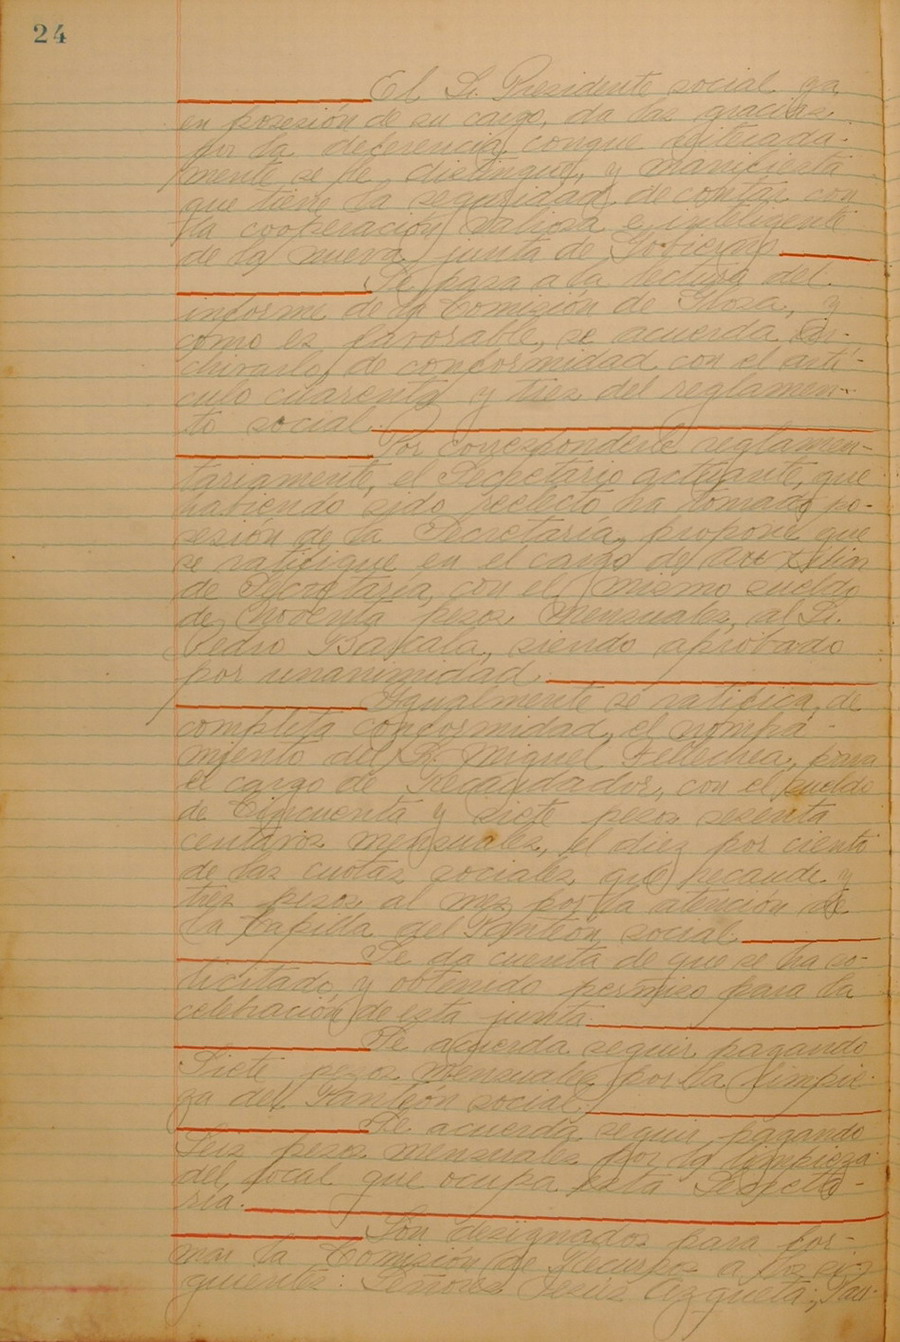 24
El Sr. Presidente social ya
en posesión de su cargo, da las gracias
por la deferencia conque reiterada-
mente se le distingue, y manifiesta
que tiene la seguridad de contar con
la cooperación valiosa e inteligente
de la nueva junta de Gobierno.
Se pasa a la lectura del
informe de la Comisión de Glosa, y
como es favorable, se acuerda ar-
chivarlo, de conformidad con el artí-
culo cuarenta y tres del reglamen-
to social.
Por corresponderle reglamen-
tariamente, el Secretario actuante, que
habiendo sido reelecto ha tomado po-
sesión de la Secretaría, propone que
se ratifique en el cargo de Auxiliar
de Secretaría, con el mismo sueldo
de Noventa pesos mensuales, al Sr.
Pedro Bascala, siendo aprobado
por unanimidad.
Igualmente se ratifica, de
completa conformidad, el nombra-
miento del Sr. Miguel Tellechea, para
el cargo de Recaudador, con el sueldo
de Cincuenta y siete pesos sesenta
centavos mensuales, el diez por ciento
de las cuotas sociales que recaude y
tres pesos al mes por la atención de
la Capilla del Panteón social.
Se da cuenta de que se ha so-
licitado y obtenido permiso para la
celebración de esta junta.
Se acuerda seguir pagando
Siete pesos mensuales por la limpie-
za del Panteón social.
Se acuerda seguir pagando
Seis pesos mensuales por la limpieza
del local que ocupa esta Secreta-
ría.
Son designados para for-
mar la Comisión de Recursos a los si-
guientes: Señores Jesús Azqueta;